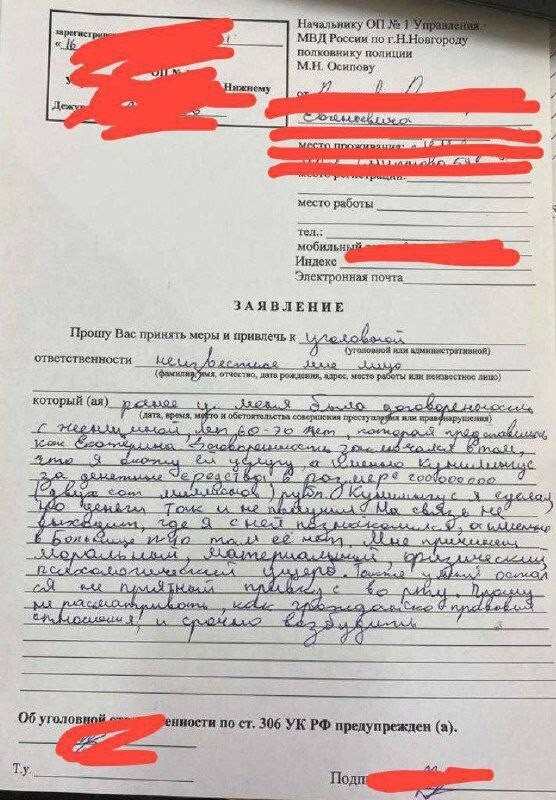 зарегистри
« 16
ОП №
Нижнему
Дежу
Начальнику ОП № 1 Управления
МВД России по г.Н.Новгороду
полковнику полиции
М.Н. Осипову
от
Евгеньевича
место проживания:
место регистрации:
место работы
тел.:
мобильный
Индекс
Электронная почта
ЗАЯВЛЕНИЕ
Прошу Вас принять меры и привлечь к уголовной
(уголовной или административной)
ответственности неизвестное мне лицо
(фамилия, имя, отчество, дата рождения, адрес, место работы или неизвестное лицо)
который (ая) ранее у меня была договоренность
(дата, время, место и обстоятельства совершения преступления или правонарушения)
с женщиной, лет 60-70 лет, которая представилась
как Екатерина. Договоренность заключался в том,
что я окажу ей услугу, а именно Кунилингус
за денежные средства в размере 200000000
(двух сот миллионов) рубл. Кунилингус я сделал,
но деньги так и не получил. На связь не
выходит, где я с ней познакомился, а именно
в больнице №40 там её нет. Мне причинен
моральный, материальный, физический,
психологический ущерб. Также у меня остал
ся не приятный привкус во рту. Прошу
не рассматривать, как гражданско правовые
отношения, и срочно возбудить
Об уголовной ответственности по ст. 306 УК РФ предупрежден (а).
Т.у.
Подп